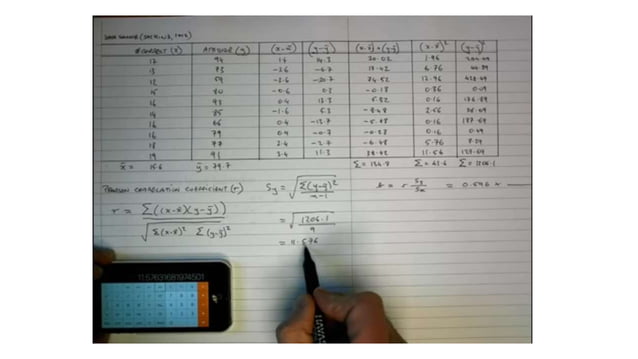 # CORRECT (x) ATTITUDE (y) (x-x̄) (y-ȳ) (x-x̄)(y-ȳ) (x-x̄)² (y-ȳ)²
17 94 1.4 14.3 20.02 1.96 204.49
13 73 -2.6 -6.7 17.42 6.76 44.89
12 59 -3.6 -20.7 74.52 12.96 428.49
15 80 -0.6 0.3 -0.18 0.36 0.09
16 93 0.4 13.3 5.32 0.16 176.89
14 85 -1.6 5.3 -8.48 2.56 28.09
16 66 0.4 -13.7 -5.48 0.16 187.69
16 79 0.4 -0.7 -0.28 0.16 0.49
18 77 2.4 -2.7 -6.48 5.76 7.29
19 91 3.4 11.3 38.42 11.56 127.69
x̄ = 15.6 ȳ = 79.7 Σ = 134.8 Σ = Σ = 1206.1
PEARSON CORRELATION COEFFICIENT (r)
r = Σ((x-x̄)(y-ȳ)) / √(Σ(x-x̄)² Σ(y-ȳ)²)
Sy = √(Σ(y-ȳ)² / n-1)
= √(1206.1 / 9)
= 11.576
b = r Sy/Sx = 0.596 ×
11.57631681974501